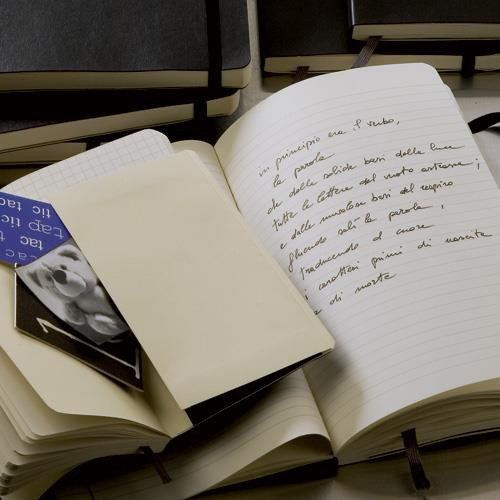 tic tac
tap tic
tac
in principio era il verbo,
la parola
che dalle calide basi della luna
tutte le lettere del moto astrasse;
e dalle muscolose basi del respiro
salì la parola,
traducendo al cuore
i caratteri primi di nascita
e di morte
1